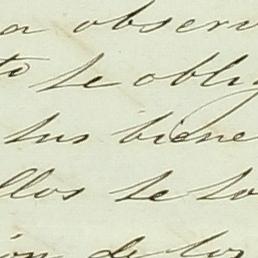 a observ
to se oblig
sus biene
llos se to
ión de los